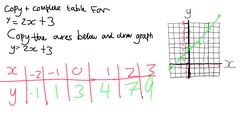 Copy + complete table For
y = 2x + 3
Copy the axes below and draw graph
y = 2x + 3
y
x
x -2 -1 0 1 2 3
y -1 1 3 4 7 9